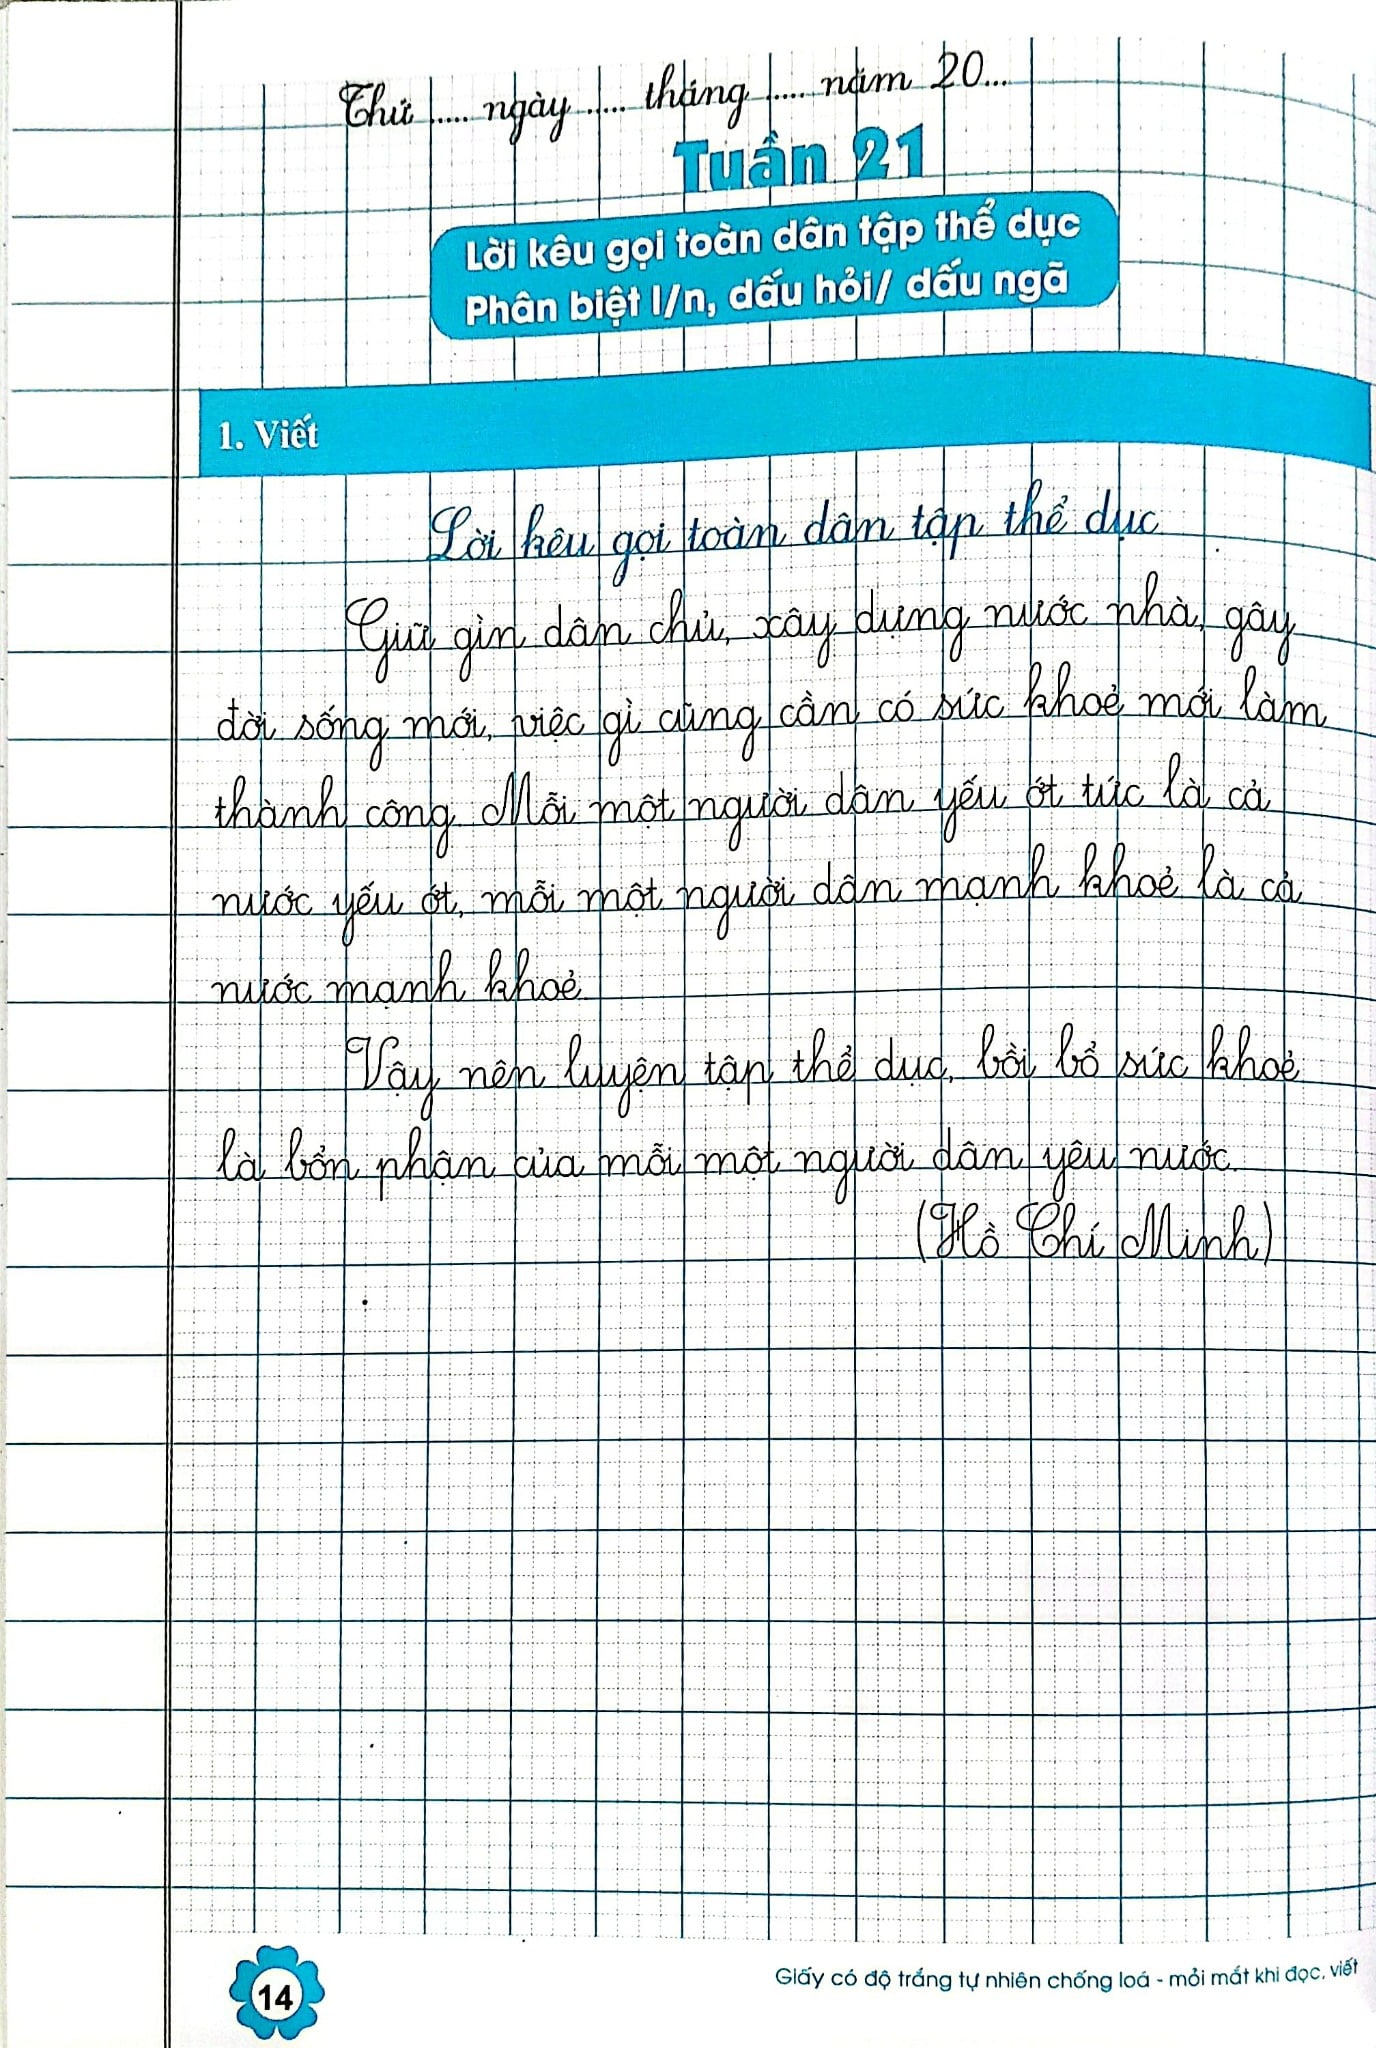 Thứ ..... ngày ..... tháng ..... năm 20...
Tuần 21
Lời kêu gọi toàn dân tập thể dục
Phân biệt l/n, dấu hỏi/ dấu ngã
1. Viết
Lời kêu gọi toàn dân tập thể dục
Giữ gìn dân chủ, xây dựng nước nhà, gây
đời sống mới, việc gì cũng cần có sức khoẻ mới làm
thành công. Mỗi một người dân yếu ớt tức là cả
nước yếu ớt, mỗi một người dân mạnh khoẻ là cả
nước mạnh khoẻ.
Vậy nên luyện tập thể dục, bồi bổ sức khoẻ
là bổn phận của mỗi một người dân yêu nước.
(Hồ Chí Minh)
14
Giấy có độ trắng tự nhiên chống loá - mỏi mắt khi đọc, viết